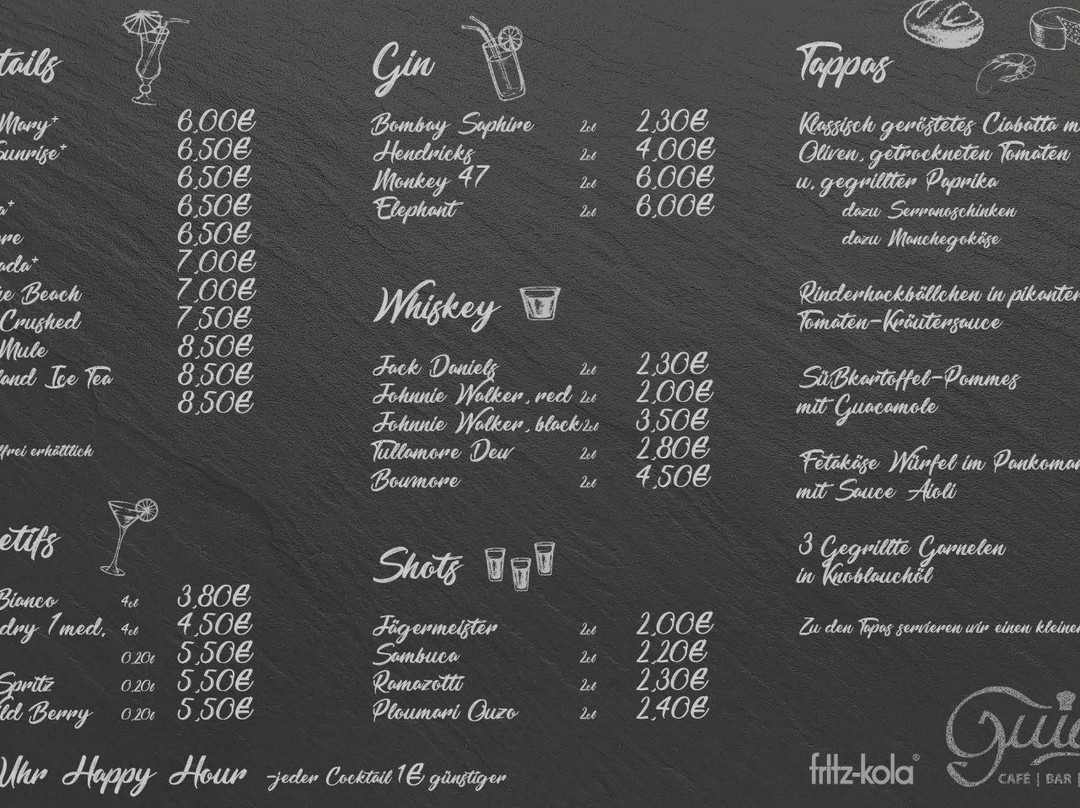 tails
Mary+ 6,00€
Sunrise+ 6,50€
6,50€
a+ 6,50€
re 6,50€
ada+ 7,00€
he Beach 7,00€
Crushed 7,50€
Mule 8,50€
land Ice Tea 8,50€
8,50€
lfrei erhältlich
etifs
Bianco 4cl 3,80€
dry 1 med. 4cl 4,50€
0,20l 5,50€
Spritz 0,20l 5,50€
ild Berry 0,20l 5,50€
Uhr Happy Hour -jeder Cocktail 1€ günstiger
Gin
Bombay Saphire 2cl 2,30€
Hendricks 2cl 4,00€
Monkey 47 2cl 6,00€
Elephant 2cl 6,00€
Whiskey
Jack Daniels 2cl 2,30€
Johnnie Walker, red 2cl 2,00€
Johnnie Walker, black 2cl 3,50€
Tullamore Dew 2cl 2,80€
Bowmore 2cl 4,50€
Shots
Jägermeister 2cl 2,00€
Sambuca 2cl 2,20€
Ramazotti 2cl 2,30€
Ploumari Ouzo 2cl 2,40€
Tappas
Klassisch geröstetes Ciabatta m
Oliven, getrockneten Tomaten
u, gegrillter Paprika
dazu Serranoschinken
dazu Manchegokäse
Rinderhackbällchen in pikanter
Tomaten-Kräutersauce
SüBkartoffel-Pommes
mit Guacamole
Fetakäse Würfel im Pankoman
mit Sauce Aioli
3 Gegrillte Garnelen
in Knoblauchöl
Zu den Tapas servieren wir einen kleinen
fritz-kola®
CAFÉ | BAR |